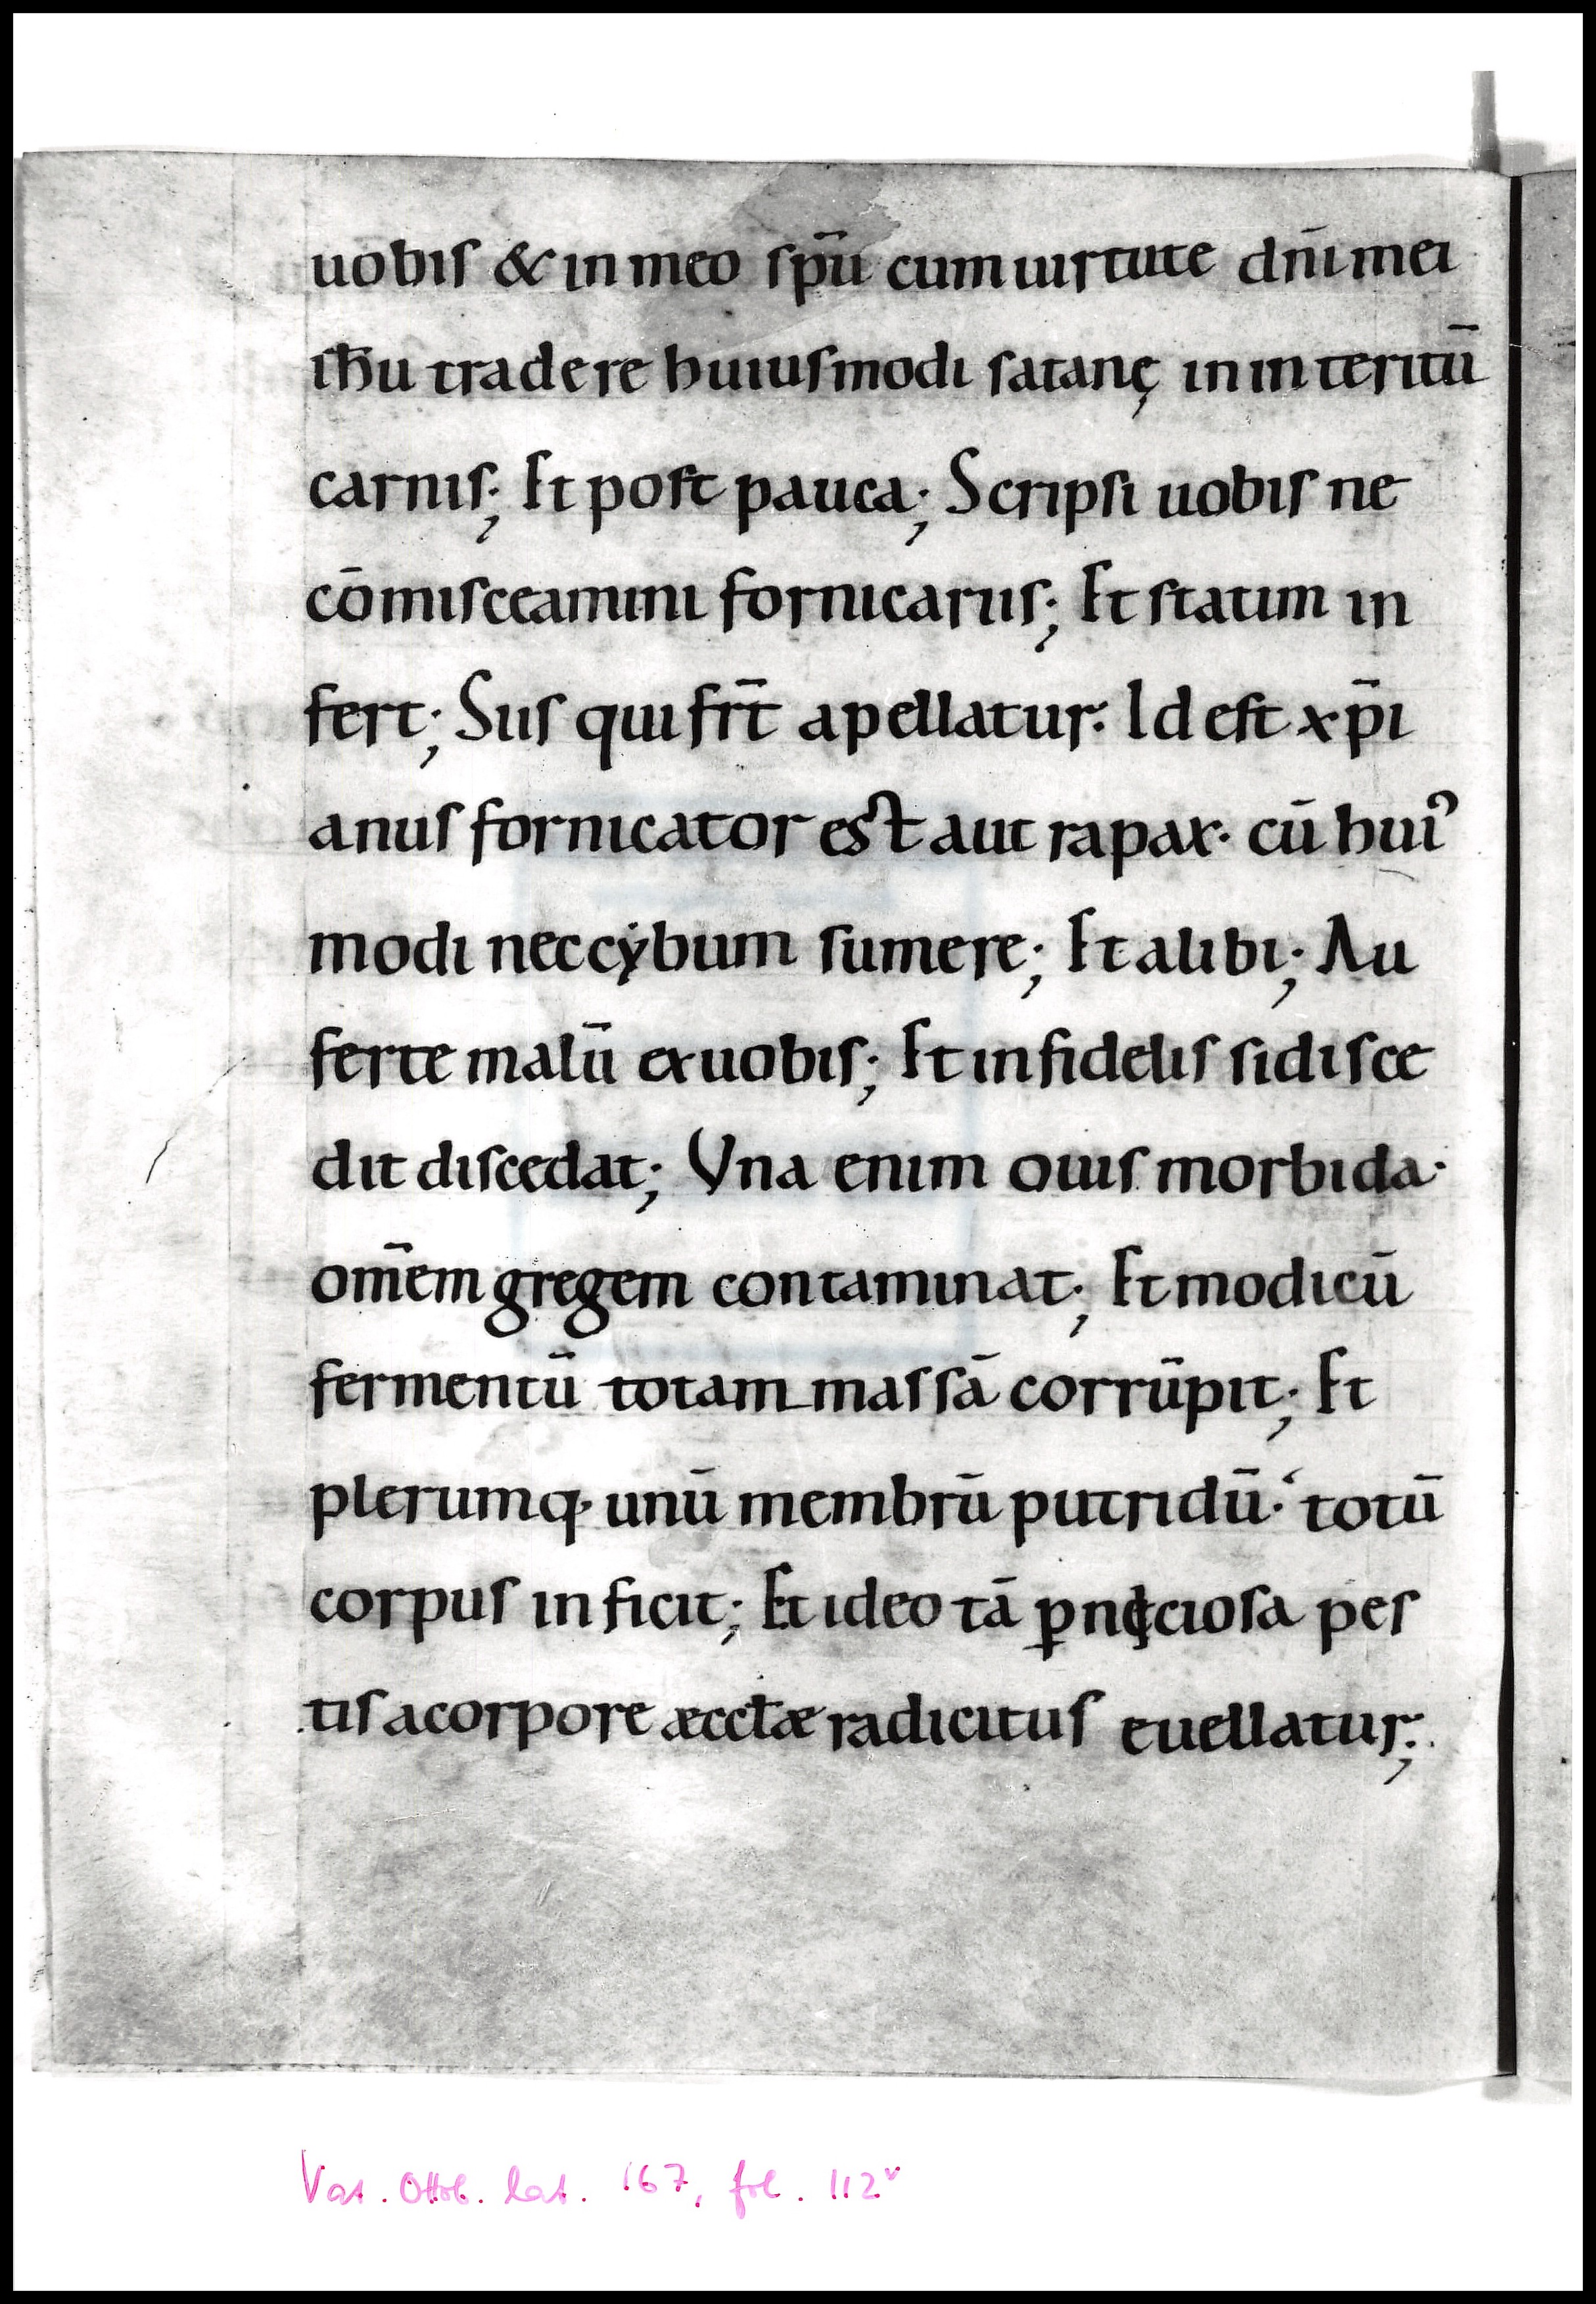 uobis & in meo sp̄u cum uirtute dn̄i mei
ih̄u tradere huiusmodi satanę in interitū
carnis; Et post pauca; Scripsi uobis ne
cōmisceamini fornicariis; Et statim in
fert; Siis qui fr̄t apellatur· Id est xp̄i
anus fornicator est aut rapax· cū huiꝰ
modi nec cẏbum sumere; Et alibi; Au
ferte malū ex uobis; Et infidelis si disce
dit discedat; Vna enim ouis morbida·
om̄em gregem contaminat; Et modicū
fermentū totam massā corrūpit; Et
plerumq· unū membrū putridū·‘ totū
corpus inficit; Et ideo tā ꝑnęciosa pes
tis a corpore æccłæ radicitus euellatur;
Vat. Ottob. lat. 167, fol. 112ᵛ